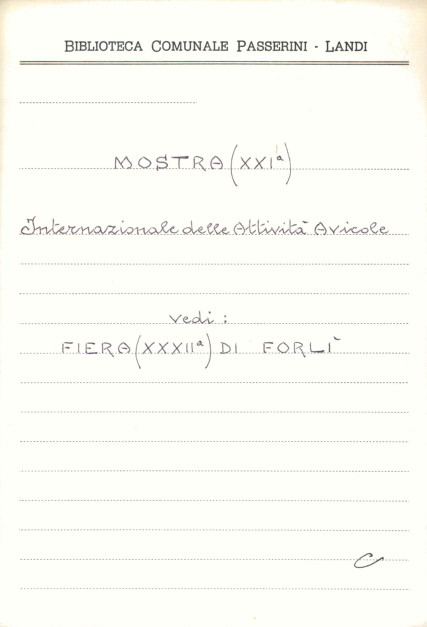 BIBLIOTECA COMUNALE PASSERINI - LANDI
MOSTRA (XXIª)
Internazionale delle Attività Avicole
vedi :
FIERA (XXXIIª) DI FORLÌ
C